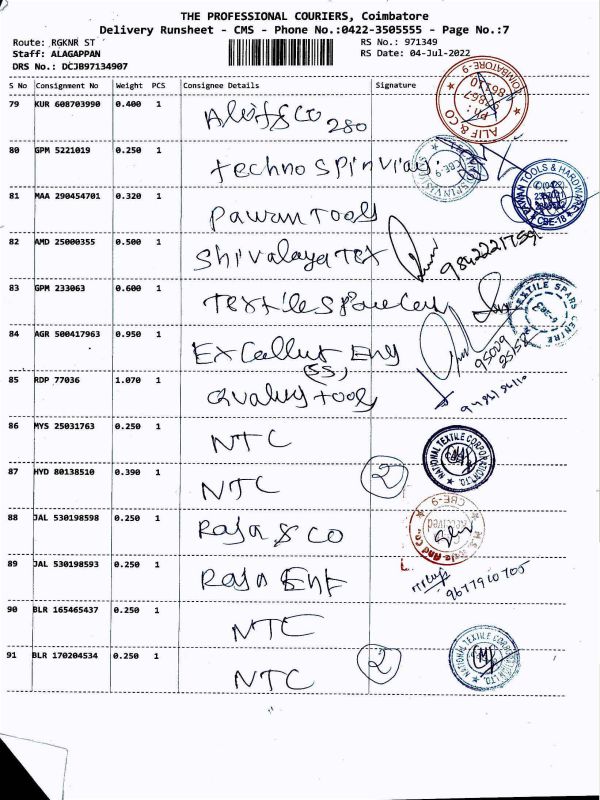 THE PROFESSIONAL COURIERS, Coimbatore
Delivery Runsheet - CMS - Phone No.:0422-3505555 - Page No.:7
Route: RGKNR ST
RS No.: 971349
Staff: ALAGAPPAN
RS Date: 04-Jul-2022
DRS No.: DCJB97134907
S No Consignment No Weight PCS Consignee Details Signature
79 KUR 608703990 0.400 1 Alif & CO 280
ALIF & CO COIMBATORE-9
80 GPM 5221019 0.250 1 Techno Spin
CBE-9
81 MAA 290454701 0.320 1 Pawan Tools
PAWAN TOOLS & HARDWARE CBE-18
82 AMD 25000355 0.500 1 Shivalaya Tex 9842221759
83 GPM 233063 0.600 1 Textile
TEXTILE SPARS CENTRE
84 AGR 500417963 0.950 1 Eng
(SS)
85 RDP 77036 1.070 1 Tools
86 MYS 25031763 0.250 1 NTC
NATIONAL TEXTILE CORPORATION LTD.
87 HYD 80138510 0.390 1 NTC 2
CBE-9
88 JAL 530198598 0.250 1 Raja & CO
Received
89 JAL 530198593 0.250 1 Raja Ent 9677910705
90 BLR 165465437 0.250 1 NTC
91 BLR 170204534 0.250 1 NTC 2
NATIONAL TEXTILE CORPORATION LTD.